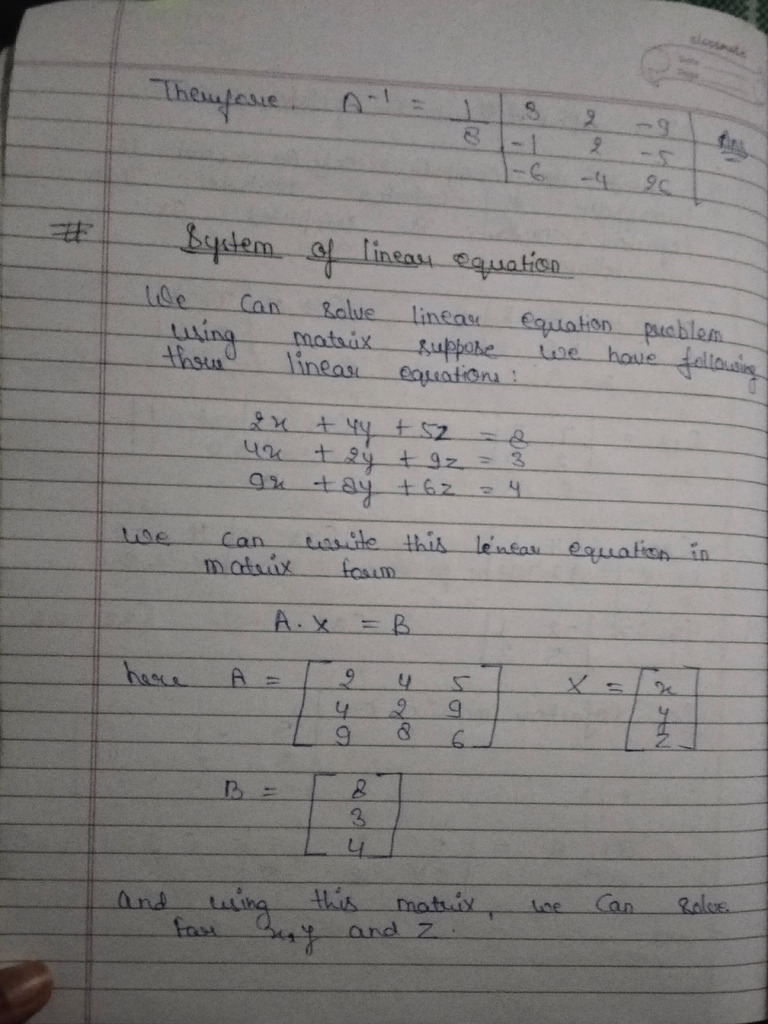 classmate
Date
Page
Therefore. A⁻¹ = 1/8 | 3 2 -9 | Ans
-1 2 -5
-6 -4 26
# System of linear equation
We can solve linear equation problem
using matrix suppose we have following
three linear equations:
2x + 4y + 5z = 8
4x + 2y + 9z = 3
9x + 8y + 6z = 4
We can write this linear equation in
matrix form
A. X = B
here A = [ 2 4 5 ] X = [ x ]
4 2 9 y
9 8 6 z
B = [ 8 ]
3
4
and using this matrix, we can solve
for x, y and z.